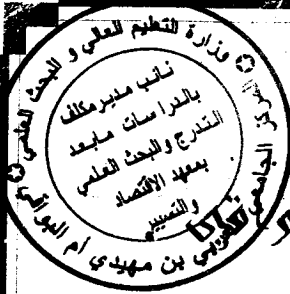 وزارة التعليم العالي و البحث العلمي
المركز الجامعي العربي بن مهيدي أم البواقي
نائب مدير مكلف
بالدراسات مابعد
التدرج والبحث العلمي
بمعهد الاقتصاد
والتسيير